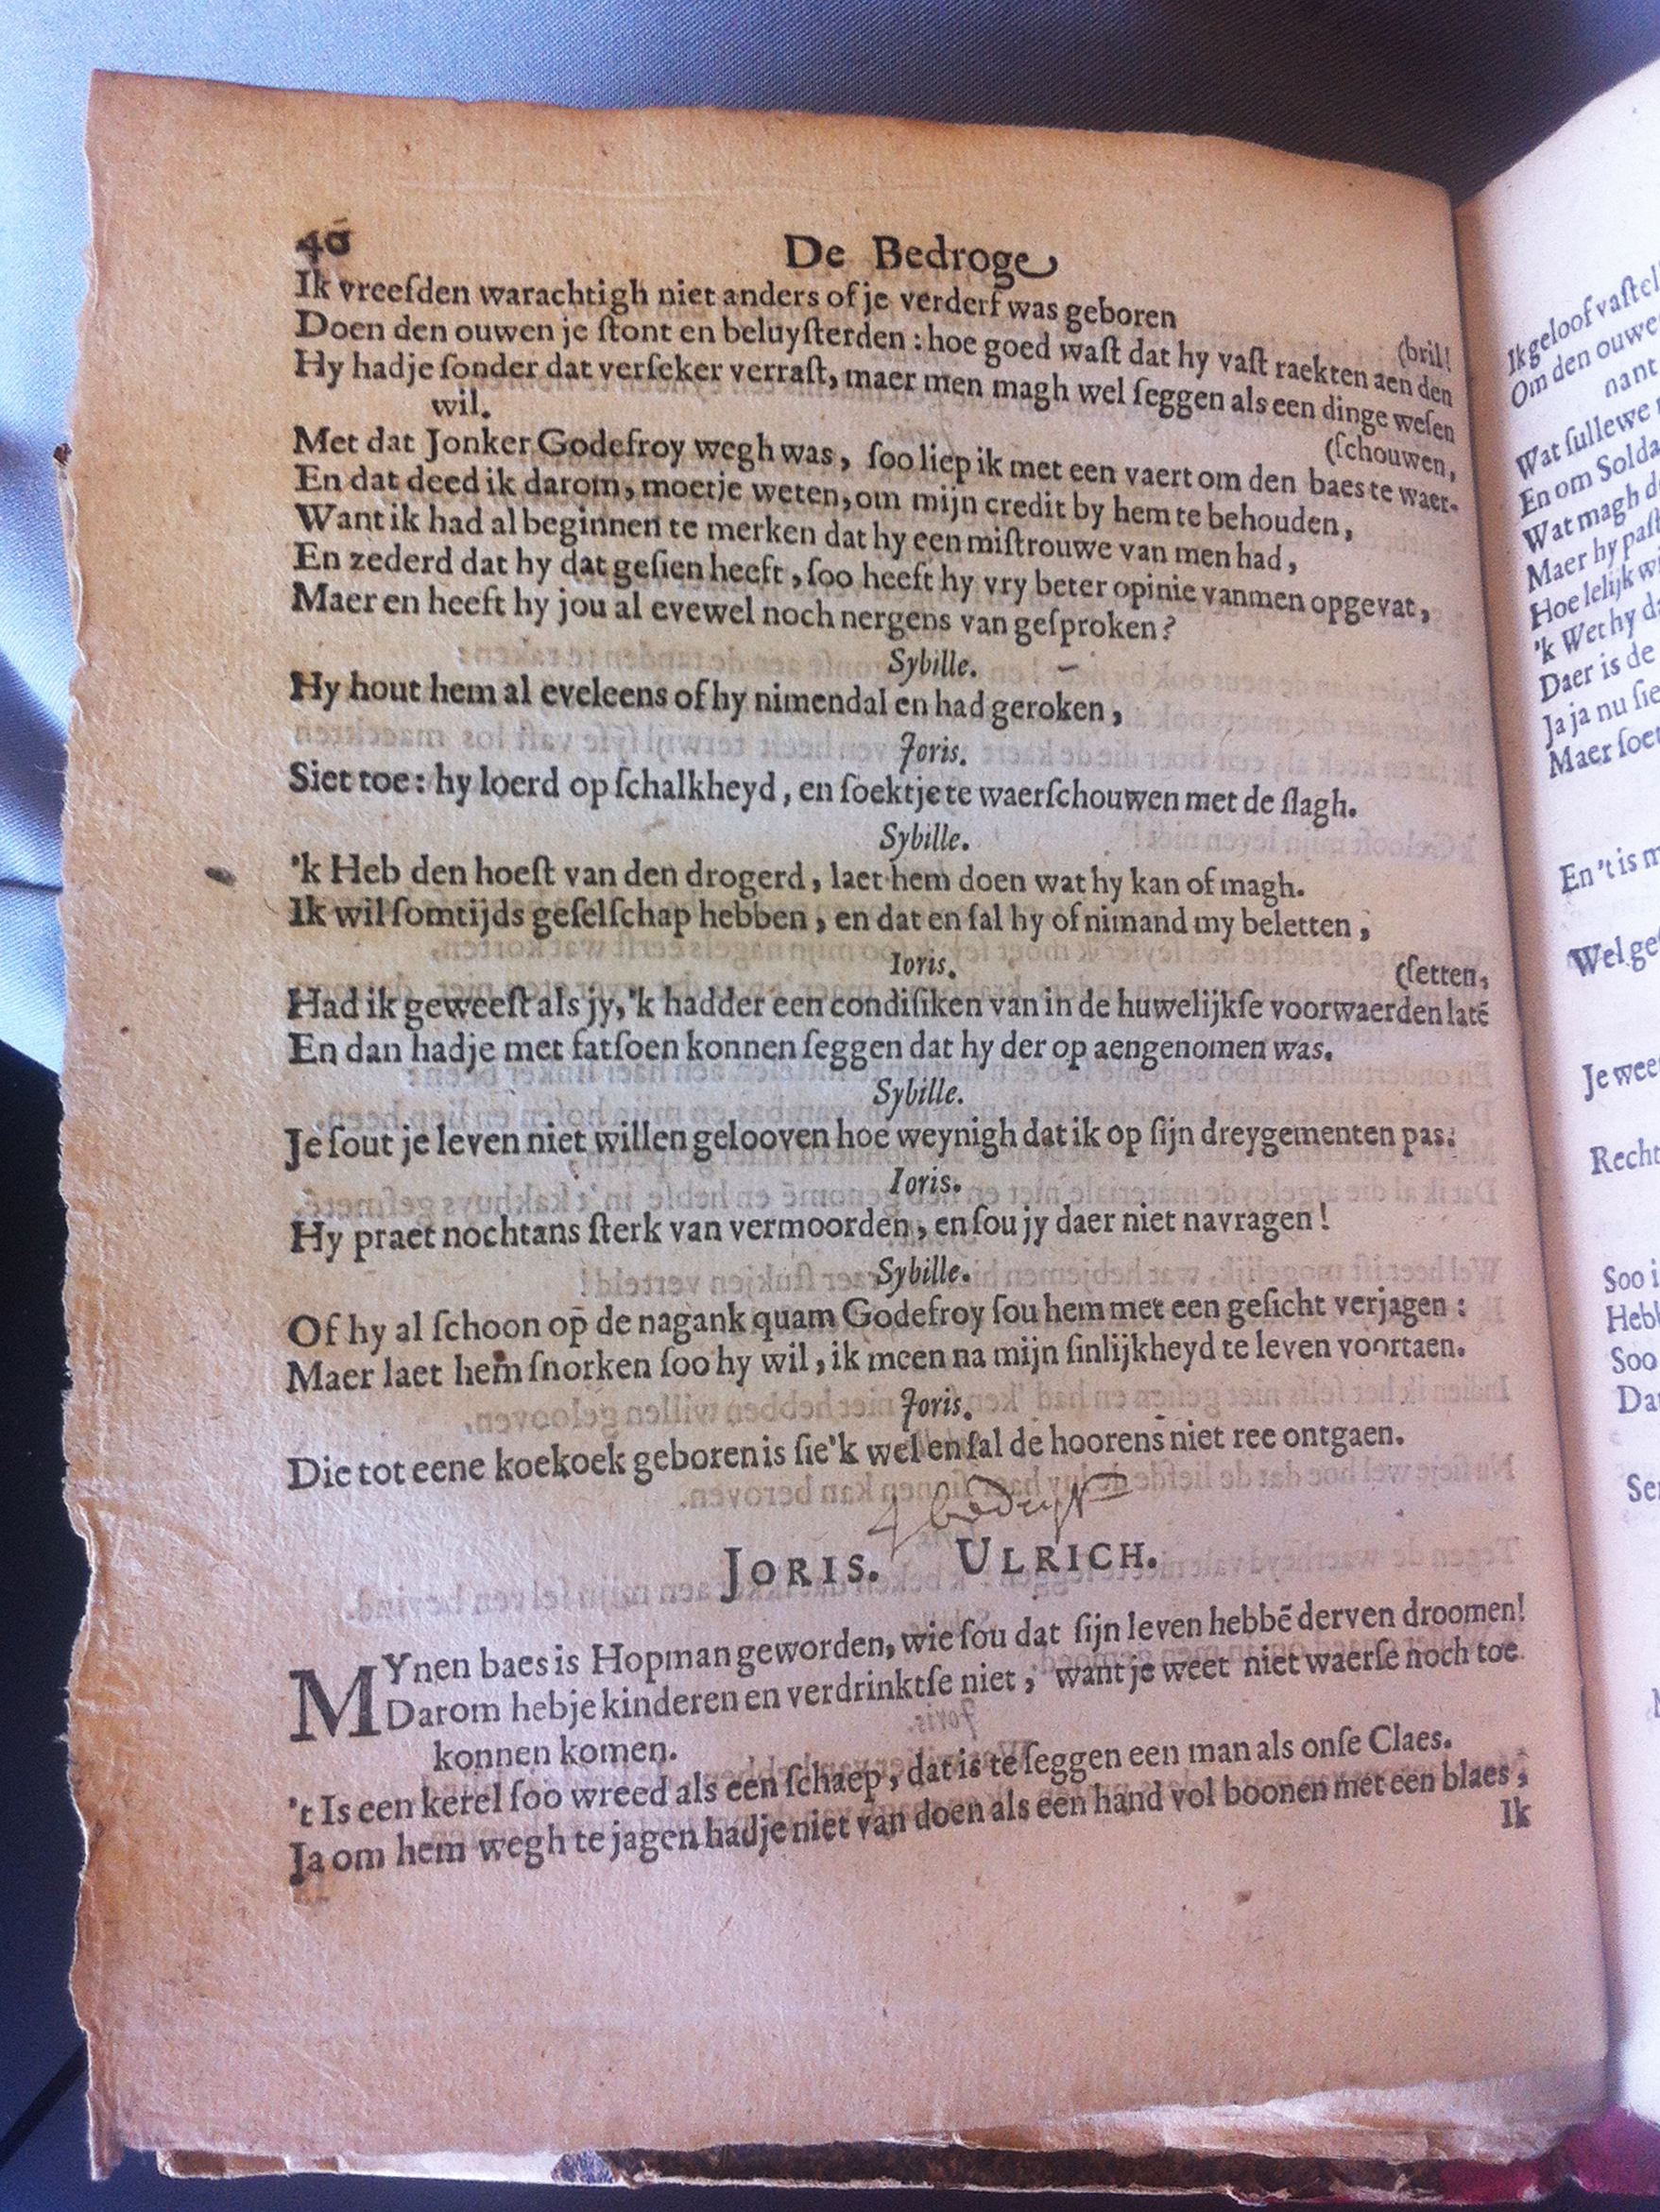 40 De Bedroge
Ik vreeſden warachtigh niet anders of je verderf was geboren
(bril!
Doen den ouwen je ſtont en beluyſterden : hoe goed waſt dat hy vaſt raekten aen den
Hy hadje ſonder dat verſeker verraſt, maer men magh wel ſeggen als een dinge weſen
wil.
(ſchouwen,
Met dat Jonker Godefroy wegh was, ſoo liep ik met een vaert om den baes te waer-
En dat deed ik darom, moetje weten, om mijn credit by hem te behouden,
Want ik had al beginnen te merken dat hy een miſtrouwe van men had,
En zederd dat hy dat geſien heeft, ſoo heeft hy vry beter opinie van men opgevat,
Maer en heeft hy jou al evewel noch nergens van geſproken?
Sybille.
Hy hout hem al eveleens of hy nimendal en had geroken,
Joris.
Siet toe: hy loerd op ſchalkheyd, en ſoektje te waerſchouwen met de ſlagh.
Sybille.
'k Heb den hoeſt van den drogerd, laet hem doen wat hy kan of magh.
Ik wil ſomtijds geſelſchap hebben, en dat en ſal hy of nimand my beletten,
Ioris.
(ſetten,
Had ik geweeſt als jy, 'k hadder een condiſiken van in de huwelijkſe voorwaerden latē
En dan hadje met fatſoen konnen ſeggen dat hy der op aengenomen was.
Sybille.
Je ſout je leven niet willen gelooven hoe weynigh dat ik op ſijn dreygementen pas.
Ioris.
Hy praet nochtans ſterk van vermoorden, en ſou jy daer niet navragen!
Sybille.
Of hy al ſchoon op de nagank quam Godefroy ſou hem met een geſicht verjagen:
Maer laet hem ſnorken ſoo hy wil, ik meen na mijn ſinlijkheyd te leven voortaen.
Joris.
Die tot eene koekoek geboren is ſie'k wel en ſal de hoorens niet ree ontgaen.
4 bedryf
JORIS. ULRICH.
MYnen baes is Hopman geworden, wie ſou dat ſijn leven hebbē derven droomen!
Darom hebje kinderen en verdrinktſe niet, want je weet niet waerſe noch toe
konnen komen.
't Is een kerel ſoo wreed als een ſchaep, dat is te ſeggen een man als onſe Claes.
Ja om hem wegh te jagen hadje niet van doen als een hand vol boonen met een blaes,
Ik
Om den ouwe
nant
Wat ſullewe
En om Solda
Wat magh d
Maer hy paſt
Hoe lelijk wi
'k Wet hy da
Daer is de
Ja ja nu ſie
Maer ſoet
En 't is m
Wel geſ
Je wee
Recht
Soo i
Hebb
Soo
Dat
Ser